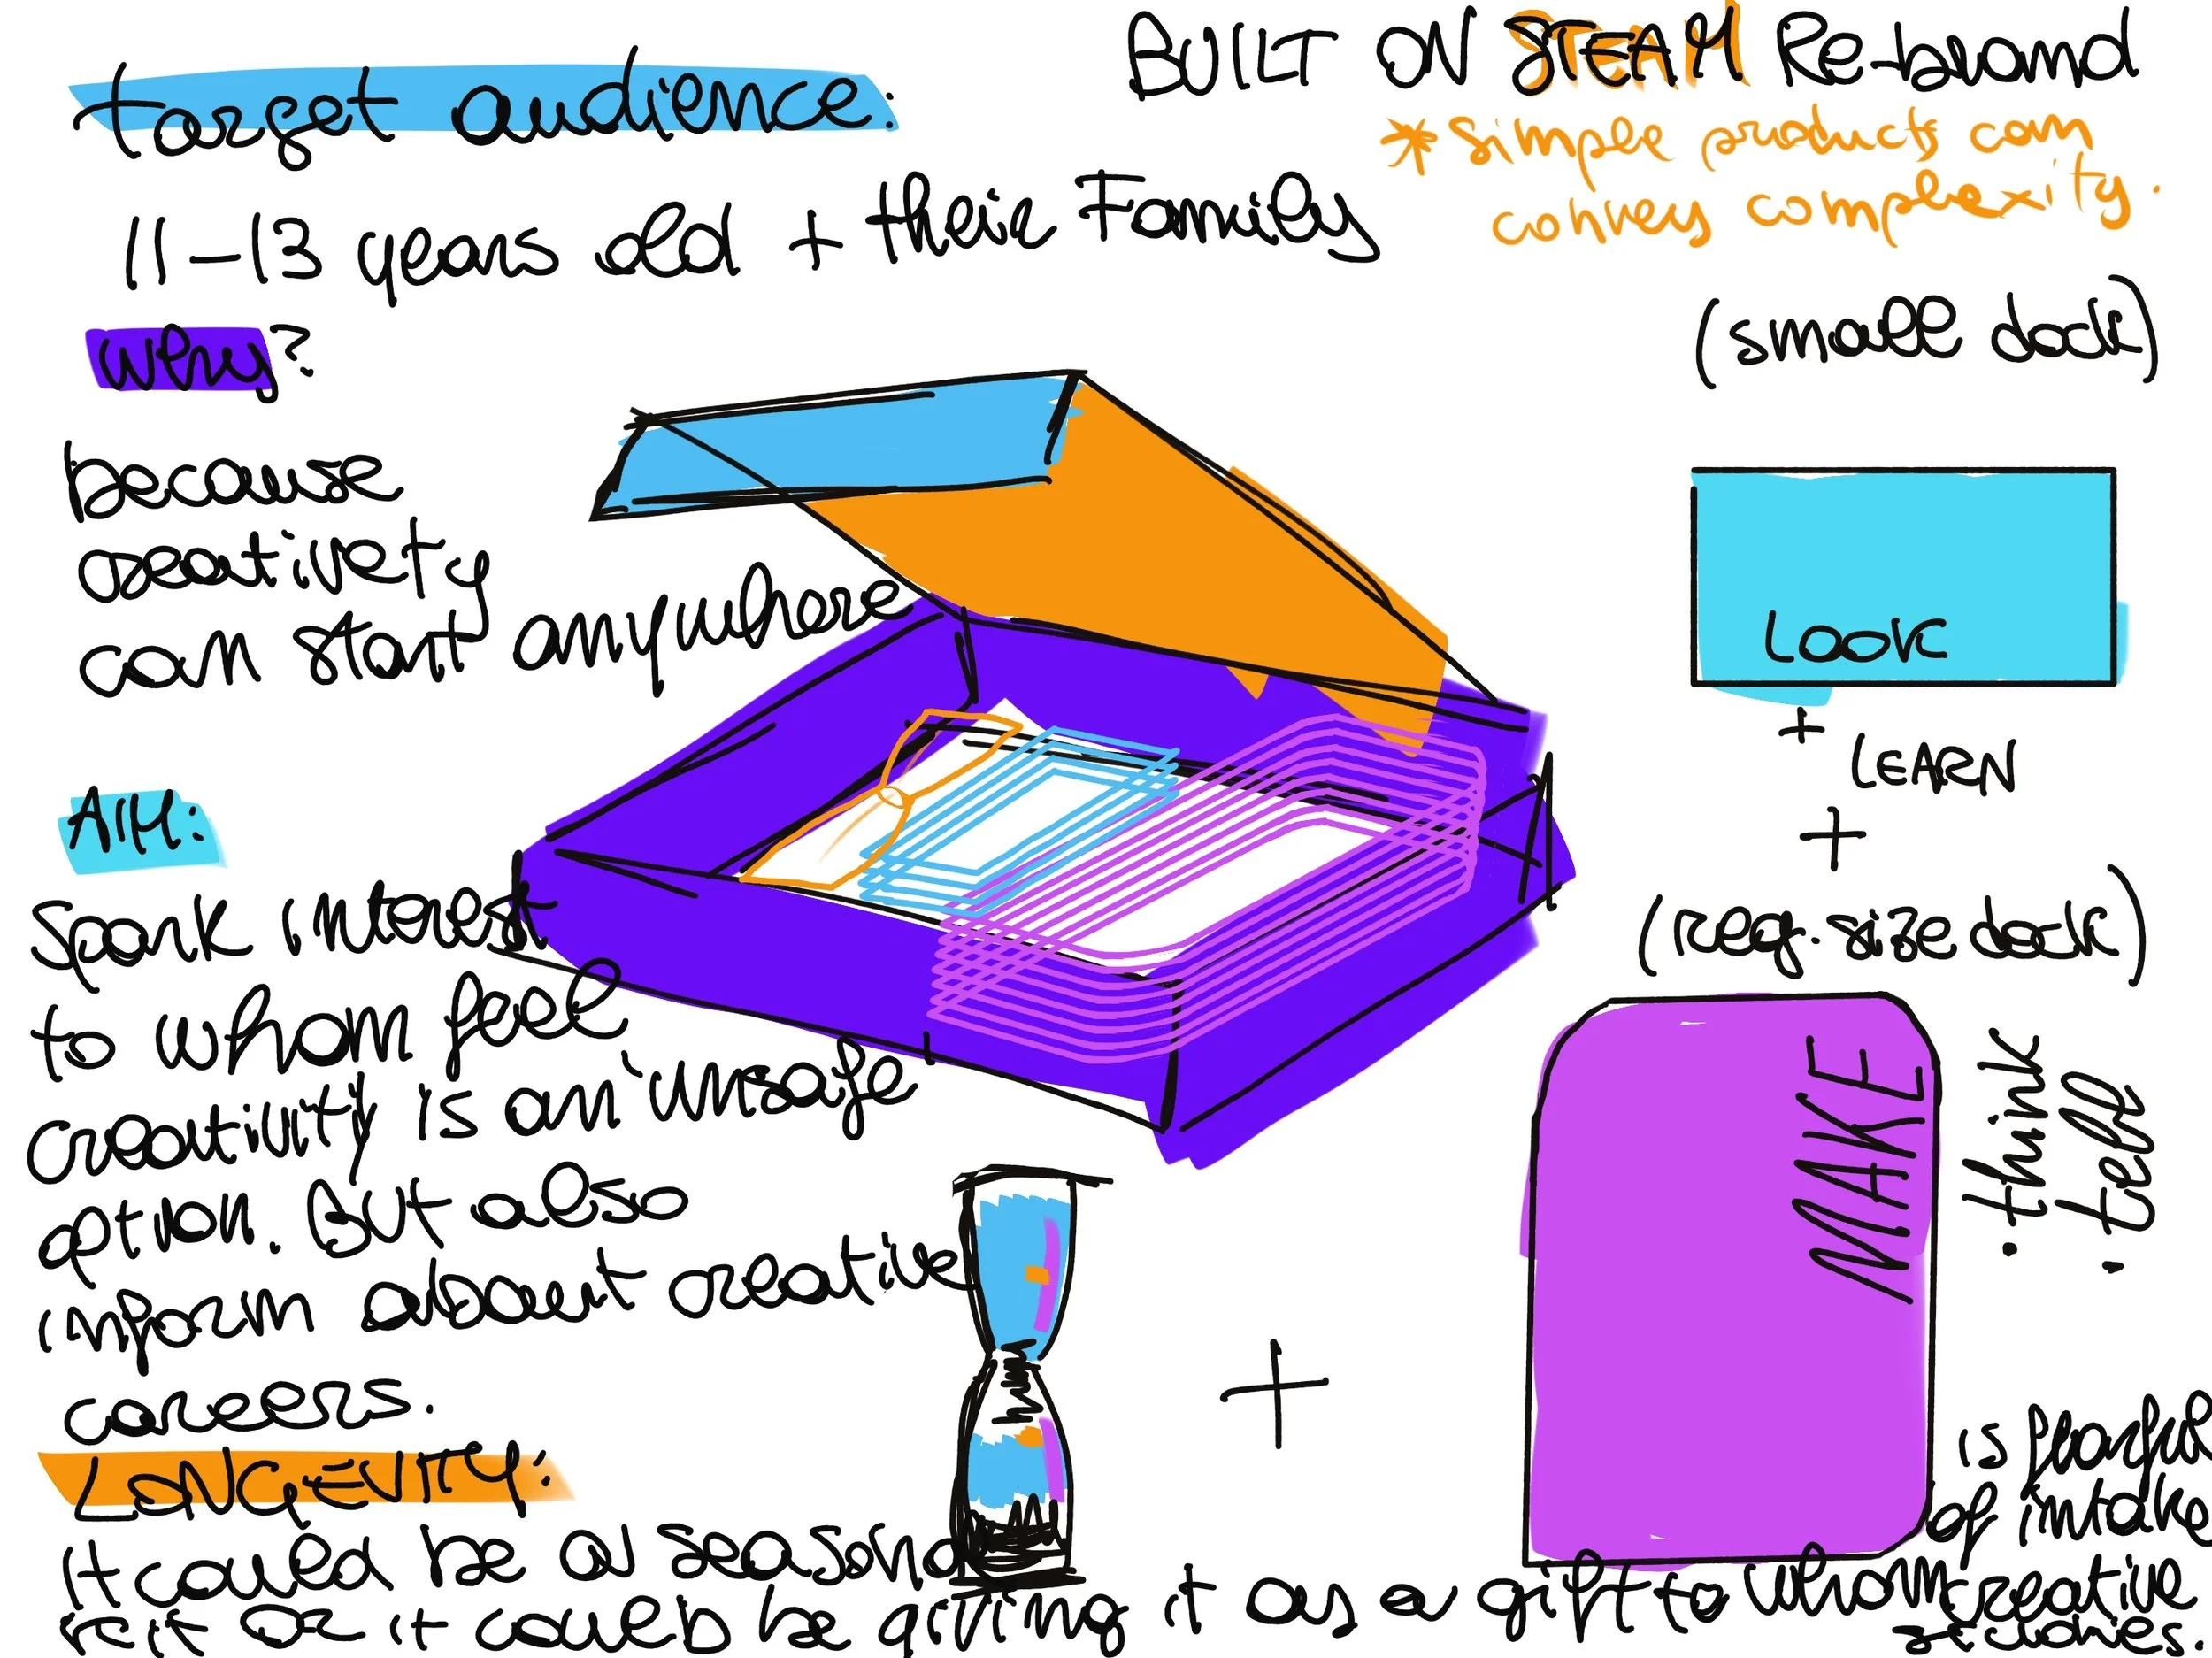 BUILT ON STEAM Re-brand
* simple products can
convey complexity.
target audience:
11-13 years old + their Family
why?
because
creativety
can start anywhere
AIM:
Spark interest
to whom feel
creativity is an 'unsafe'
option. But also
inform about creative
careers.
LONGEVITY:
it could be a seasonal
kit or it could be giving it as a gift to whom
is fearful
of intake
creative
(small deck)
LOOK
+ LEARN
+
(reg. size deck)
MAKE
• think
• tell
+